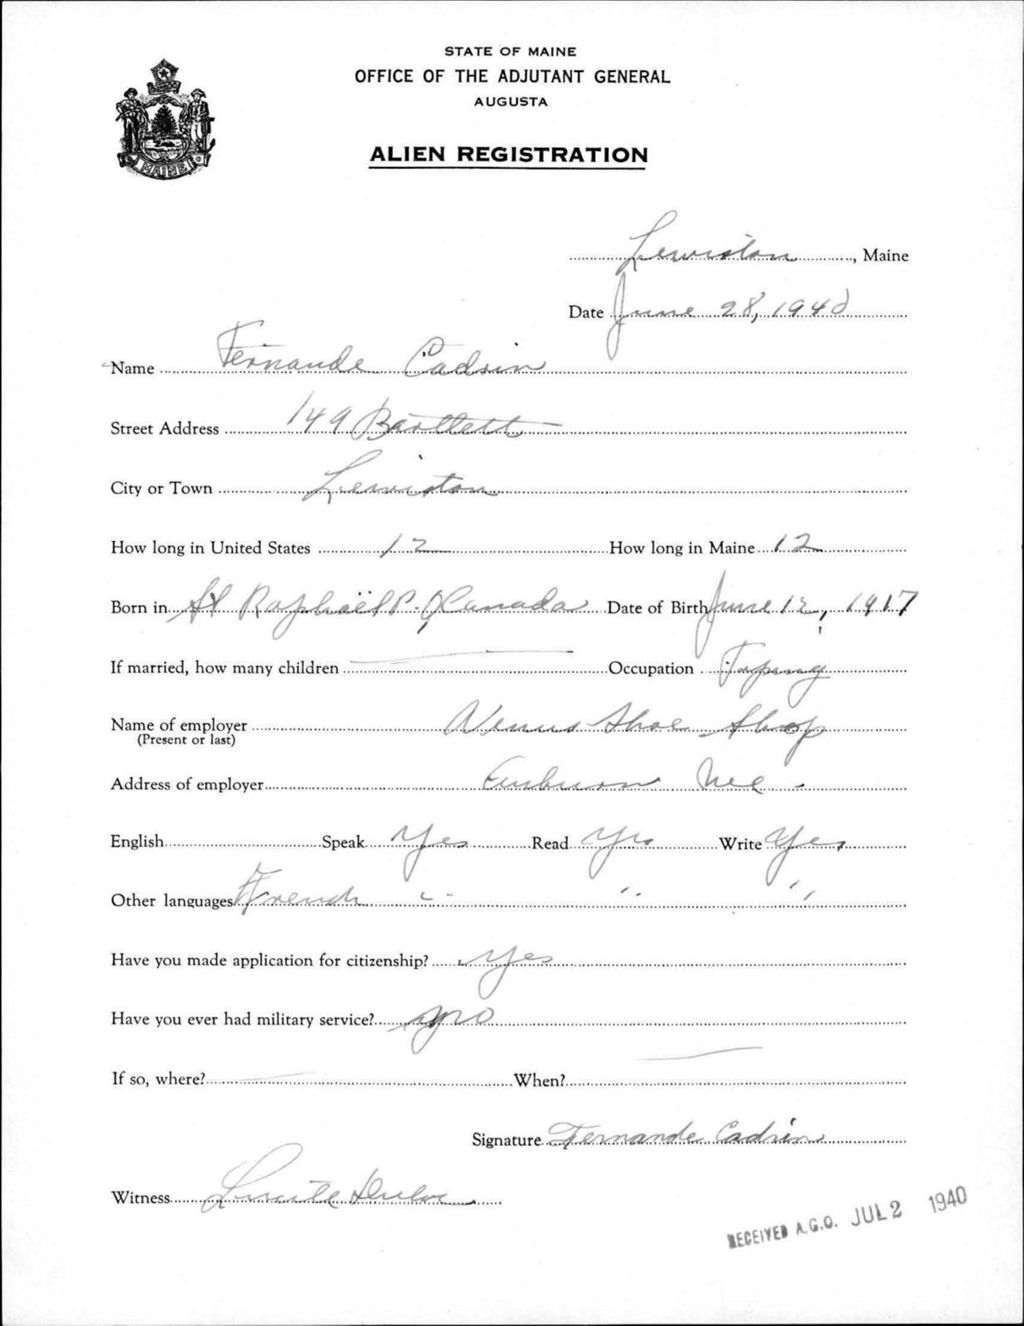 STATE OF MAINE
OFFICE OF THE ADJUTANT GENERAL
AUGUSTA
ALIEN REGISTRATION
MAINE
Lewiston, Maine
Date June 28, 1940
Name Fernande Cadrin
Street Address 149 Bartlett
City or Town Lewiston
How long in United States 12 How long in Maine 12
Born in St Raphaël P.Q Canada Date of Birth June 12, 1917
If married, how many children — Occupation Toping
Name of employer Venus Shoe Shop
(Present or last)
Address of employer Auburn Me -
English Speak Yes Read Yes Write Yes
Other languages French " " "
Have you made application for citizenship? Yes
Have you ever had military service? no
If so, where? — When? —
Signature Fernande Cadrin
Witness Lucille
RECEIVED A.G.O. JUL 2 1940